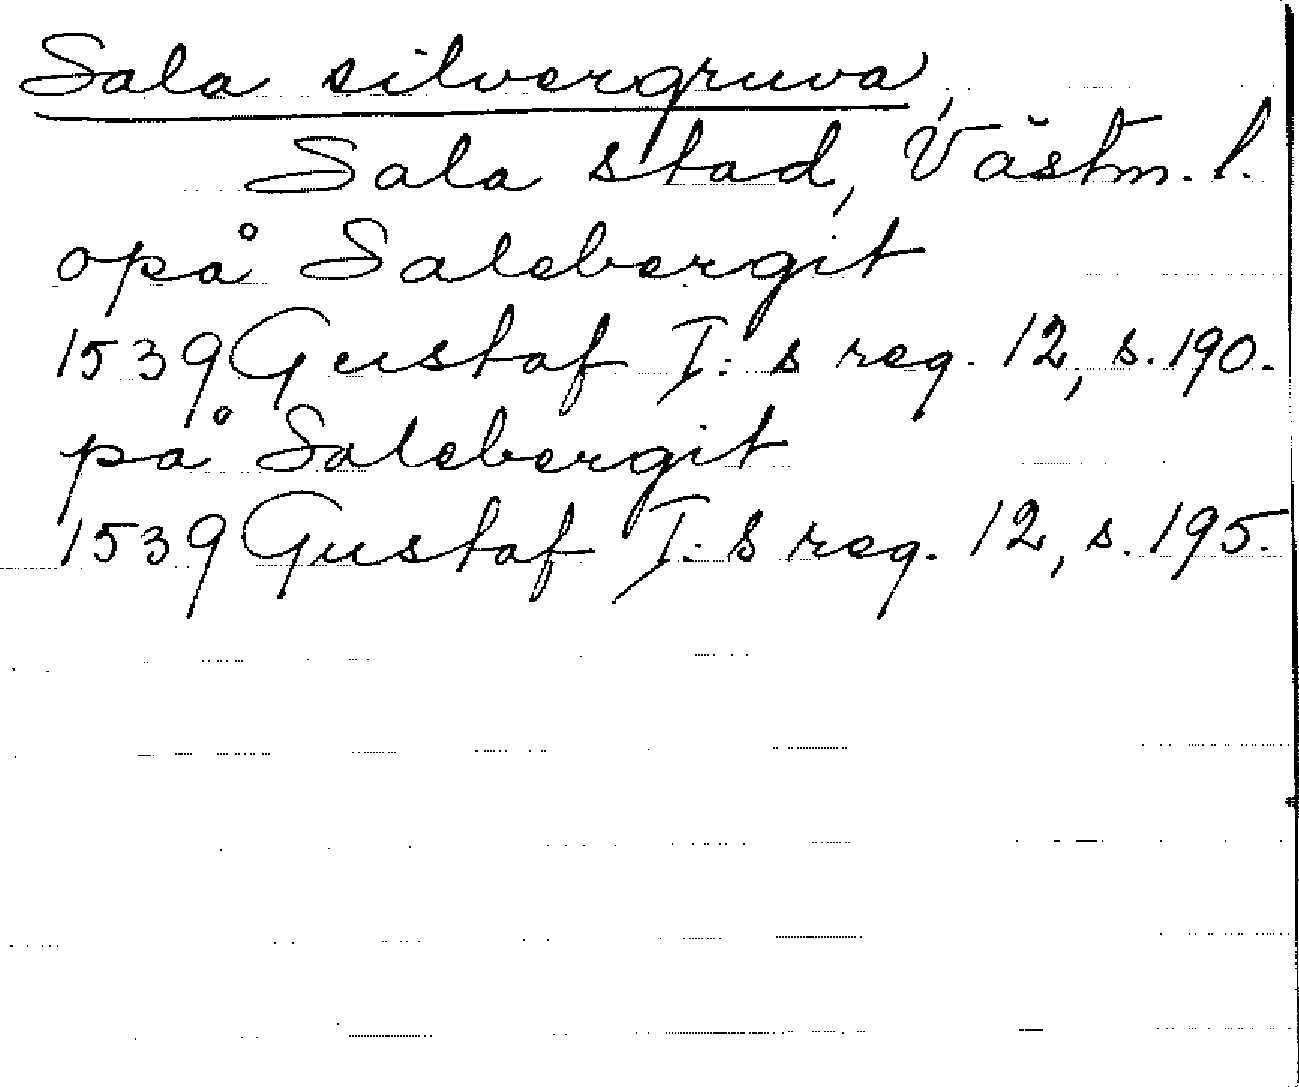 Sala silvergruva,
Sala stad, Västm. l.
opå Salebergit
1539 Gustaf I:s reg. 12, s. 190.
på Salebergit
1539 Gustaf I:s reg. 12, s. 195.